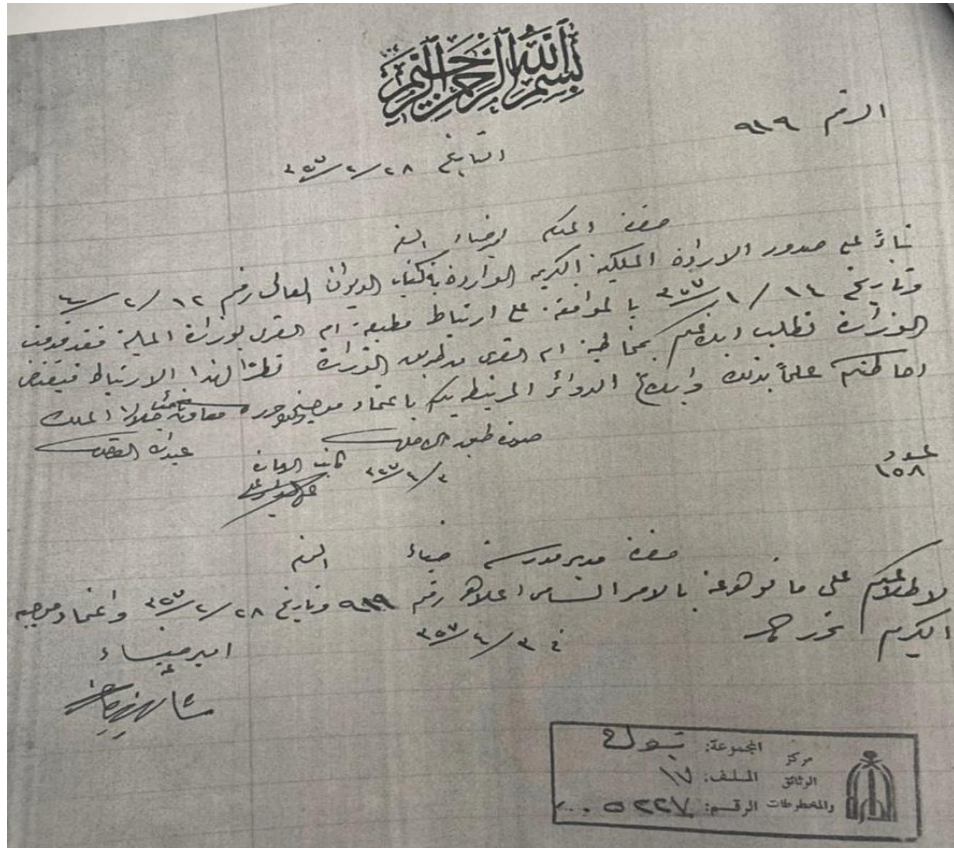 بسم الله الرحمن الرحيم
الرقم ٩١٩
التاريخ ٢٨/٢/٣٥٧
حضرة المكرم بضباء المحترم
بناءً على صدور الارادة الملكية الكريمة الواردة بكتاب الديوان العالي رقم ١٢/٢/
وتاريخ ١٤/١/٣٥٧ بالموافقة على ارتباط مطبعة ام القرى بوزارة المالية فقد
الوزارة تطلب ابلاغكم بمخاطبة ام القرى من طريق الوزارة نظراً لهذا الارتباط فيقتضي
احاطتكم علماً بذلك وابلاغ الدوائر المرتبطة بكم باعتماد موجبه وحرر معاون نائب جلالة الملك
صورة طبق الاصل
كاتب الامارة
عدد
١٥٨
حضرة مدير مدرسة ضباء المحترم
لاطلاعكم على ما نوه عنه بالامر السامي اعلاه رقم ٩١٩ وتاريخ ٢٨/٢/٣٥٧ واعتماد موجبه
الكريم تحرر
في ٣/٤/٣٥٧
امير ضباء
مركز الوثائق والمخطوطات
المجموعة: تبوك
الملف: ١٧
الرقم: ٥٢٢٧